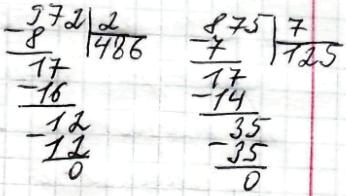 972 | 2
-8 | 486
17
-16
12
-12
0
875 | 7
-7 | 125
17
-14
35
-35
0